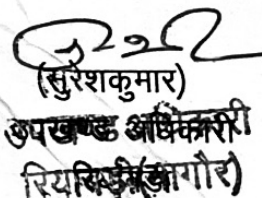 (सुरेशकुमार)
उपखण्ड अधिकारी
(नागौर)